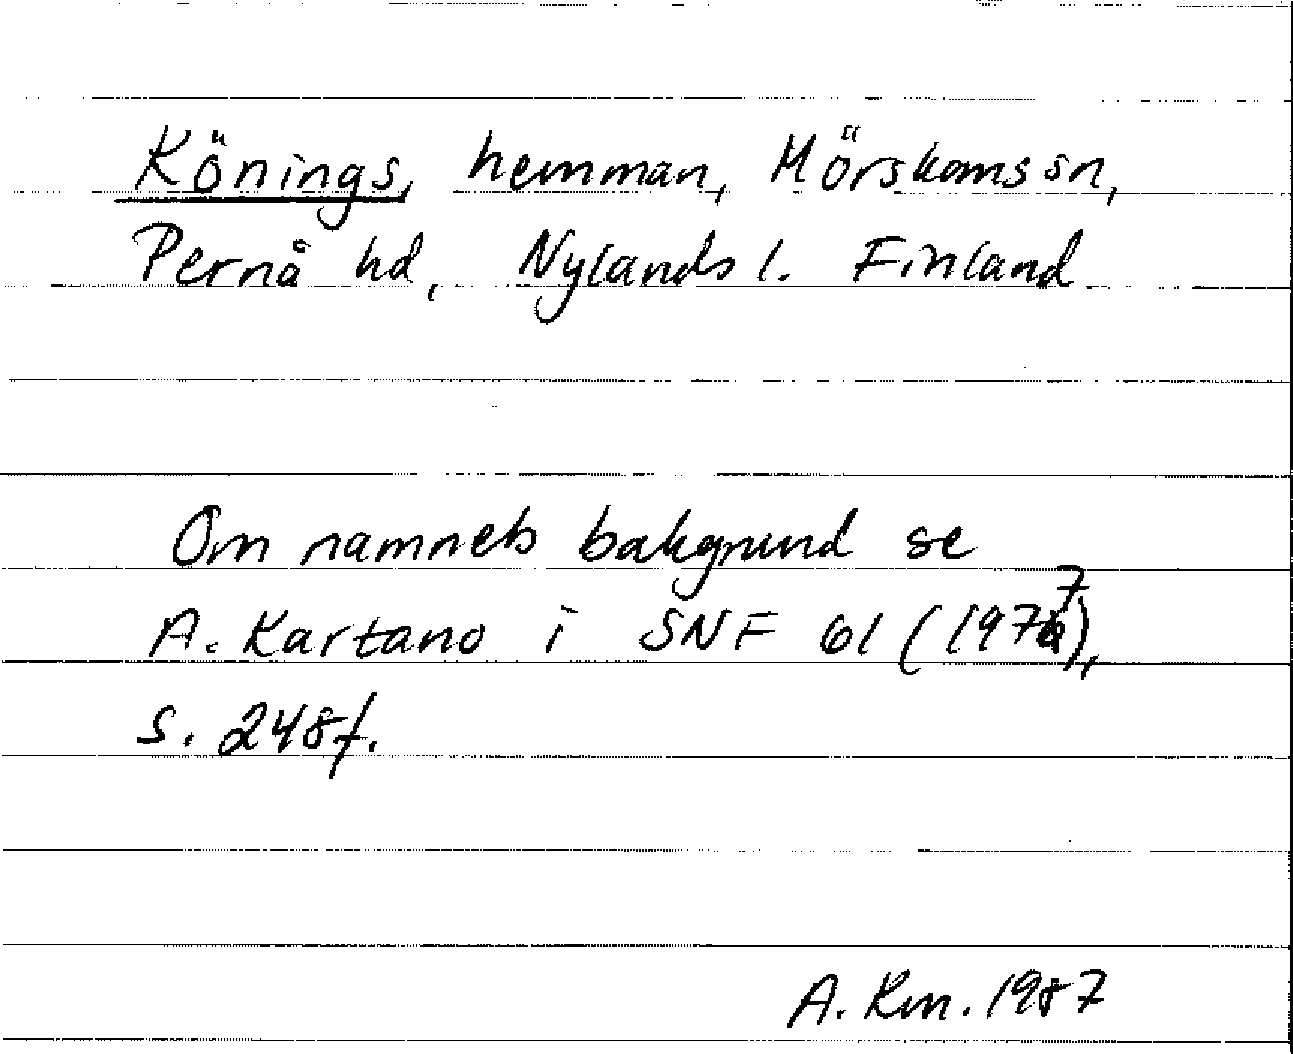 Könings, hemman, Mörskoms sn,
Pernå hd, Nylands l. Finland
Om namnets bakgrund se
A. Kartano i SNF 61 (1977),
s. 248 f.
A. Km. 1987